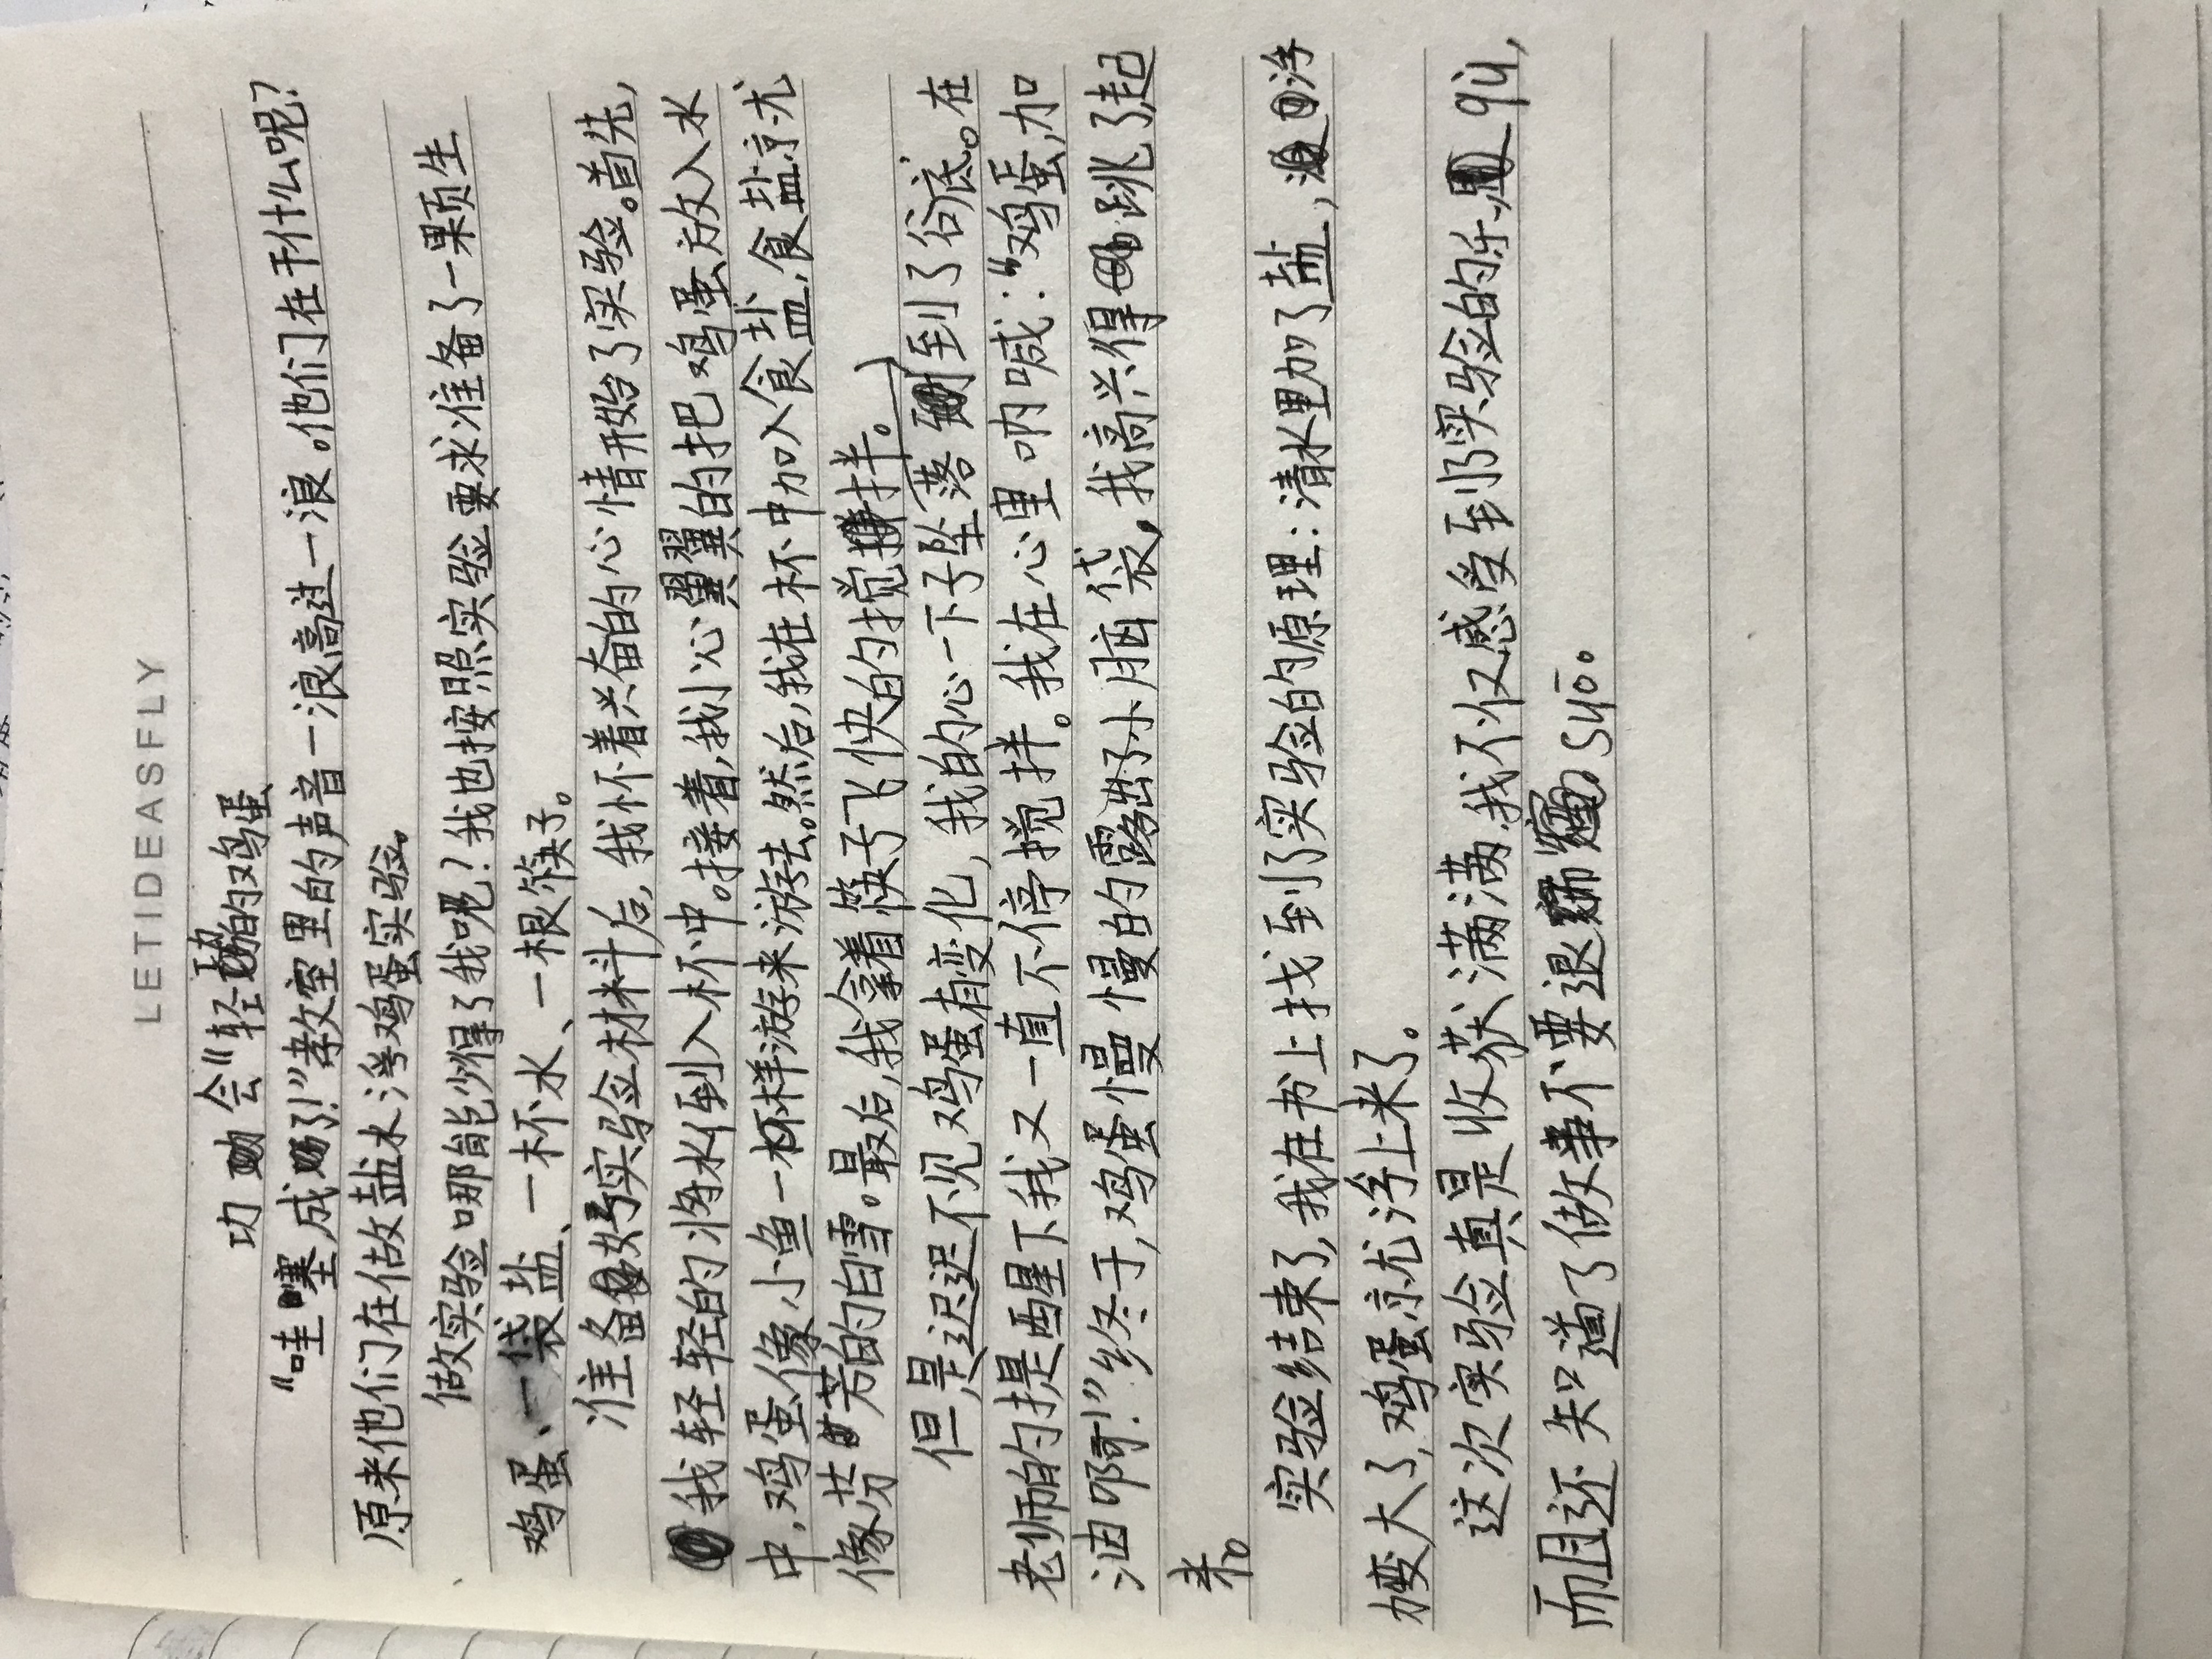 LETIDEASFLY
功会"轻功的鸡蛋
"哇噻,成了!"教室里的声音一浪高过一浪。他们在干什么呢?
原来他们在做盐水浮鸡蛋实验。
做实验哪能少得了我呢?我也按照实验要求准备了一颗生
鸡蛋、一袋盐、一杯水、一根筷子。
准备好实验材料后,我怀着兴奋的心情开始了实验。首先,
我轻轻的将水倒入杯中。接着,我小心翼翼的把鸡蛋放入水
中,鸡蛋像小鱼一样游来游去。然后,我在杯中加入食盐,食盐就
像芬芳的白雪。最后,我拿着筷子飞快的搅拌。
但是迟迟不见鸡蛋有变化,我的心一下子坠落到了谷底。在
老师的提醒下我又一直不停搅拌。我在心里呐喊:"鸡蛋,加
油啊!"终于,鸡蛋慢慢的露出了小脑袋,我高兴得跳了起
来。
实验结束了,我在书上找到了实验的原理:清水里加了盐,浮
力变大了,鸡蛋就浮上来了。
这次实验真是收获满满,我不仅感受到了实验的乐qù,
而且还知道了做事不要退suō。